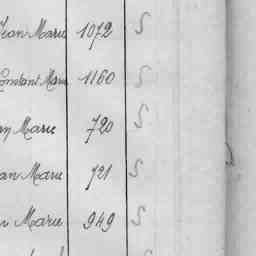 Jean Marie 1072 S
Constant Marie 1160 S
Marie 720 S
Marie 721 S
Marie 949 S